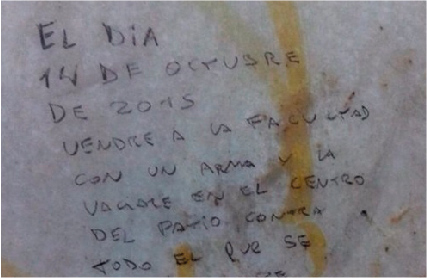 EL DIA
14 DE OCTUBRE
DE 2015
VENDRE A LA FACULTAD
CON UN ARMA Y LA
VACIARE EN EL CENTRO
DEL PATIO CONTRA
TODO EL QUE SE